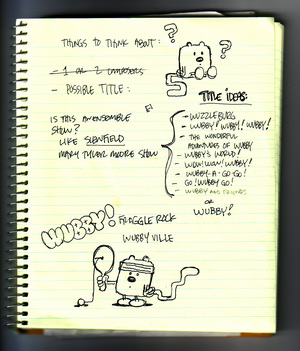 THINGS TO THINK ABOUT:
?
?
- 1 OR 2
- POSSIBLE TITLE:
5
TITLE IDEAS:
IS THIS AN ENSEMBLE
SHOW?
LIKE SEINFELD
MARY TYLER MOORE SHOW
- WUZZLEBURG
- WUBBY! WUBBY! WUBBY!
- THE WONDERFUL
ADVENTURES OF WUBBY
- WUBBY'S WORLD!
- WOW! WOW! WUBBY!
- WUBBY-A-GO-GO!
- GO! WUBBY GO!
- WUBBY AND FRIENDS
OR
WUBBY?
WUBBY!
FRAGGLE ROCK
WUBBY VILLE